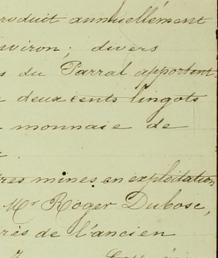 produit annuellement
environ ; divers
s du Parral apportent,
deux cents lingots
monnaie de
res mines en exploitation
Mr Roger Dubosc,
près de l'ancien